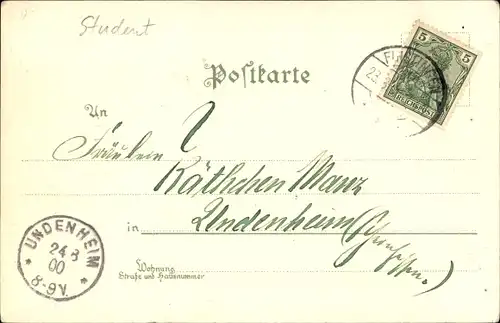 Student
5 5
REICHSPOST
23
Postkarte
An
Fräulein
Käthchen Marx
in Undenheim
Wohnung
Straße und Hausnummer
UNDENHEIM
24 3
00
8-9V.